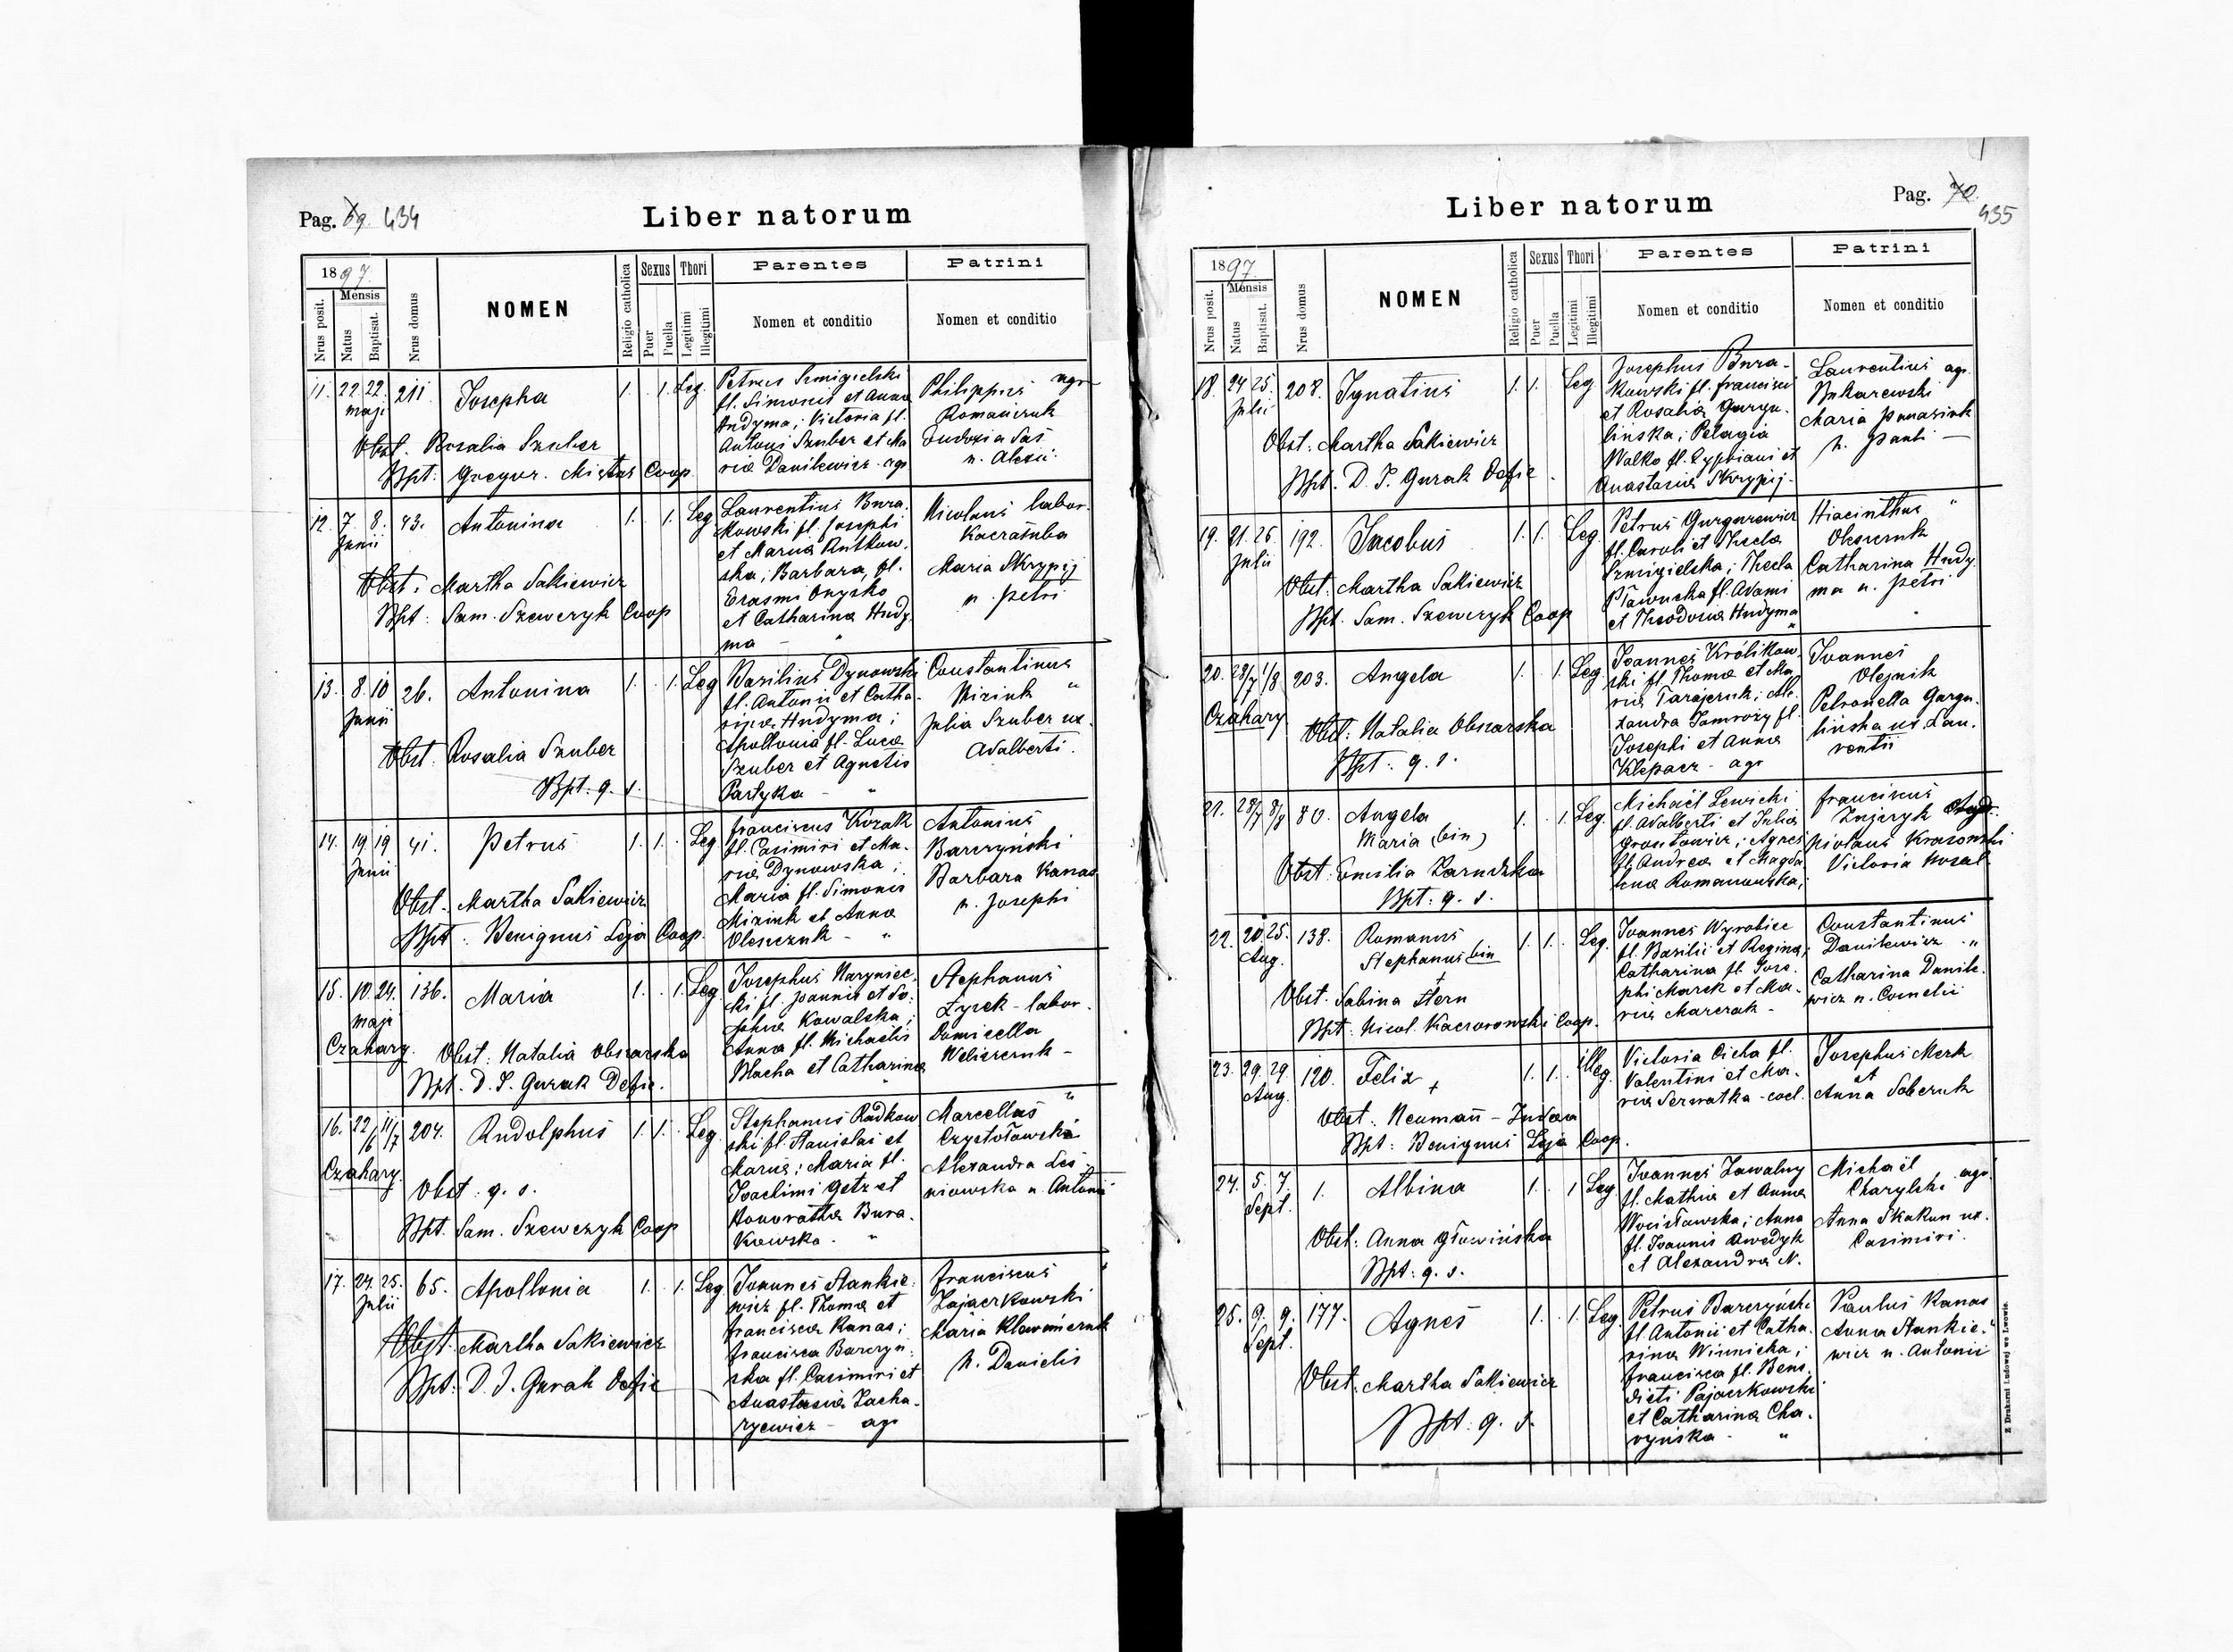 Pag. 69. 434
Liber natorum
1897.
Mensis
Nrus posit.
Natus
Baptisat.
Nrus domus
NOMEN
Religio catholica
Sexus
Puer
Puella
Thori
Legitimi
Illegitimi
Parentes
Nomen et conditio
Patrini
Nomen et conditio
11. 22 22. Maji 211 Josepha 1. 1. Leg.
Obst. Rosalia Szuber
Bpt: Gregor. Coop.
Petrus Szmigielski
fl. Simonis et Anna
Hudyma; Victoria fl.
Antoni Szuber et Ma
ria Danilewicz - agr
Philippus agr
Romańczuk
Eudoxia Saś
u. Alexii
12. 7. 8. Junii 43. Antonina 1. 1. Leg
Obst: Martha Sakiewicz
Bpt: Sam. Szewczyk Coop
Laurentius Bura.
kowski fl. Josephi
et Maria Rutkow.
ska; Barbara, fl.
Erasmi Onysko
et Catharina Hudy
ma - "
Nicolaus labor.
Kaczałuba
Maria Skrypij
u. Petri
13. 8. 10 Junii 26. Antonina 1. 1. Leg
Obst. Rosalia Szuber
Bpt: q. s.
Basilius Dynowski
fl. Antonii et Catha.
rina Hudyma;
Apollonia fl. Luca
Szuber et Agnetis
Partyka - "
Constantinus
Mizink "
Julia Szuber ux.
Adalberti.
14. 19 19 Junii 41. Petrus 1. 1. Leg
Obst. Martha Sakiewicz
Bpt: Benignus Leja Coop.
Franciscus Kozak
fl. Casimiri et Ma.
ria Dynowska;
Maria fl. Simonis
Mizink et Anna
Oleszczuk - "
Antonius
Barczyński
Barbara Kanas
u. Josephi
15. 10. 24. Maji 136. Maria 1. 1. Leg
Czahary. Obst: Natalia Obszarska
Bpt. D. J. Gurak Defic.
Josephus Naryniec.
ki fl. Joannis et So.
phia Kowalska;
Anna fl. Michaelis
Blacha et Catharina
Stephanus
Zyrek - labor.
Domicella
Weliszczuk -
16. 22/6 11/7 204. Rudolphus 1. 1. Leg
Czahary.
Obst. q. s.
Bpt. Sam. Szewczyk Coop
Stephanus Radkow
ski fl. Stanislai et
Maria; Maria fl.
Joachimi Getz et
Honoratha Bura.
kowska. "
Marcellus "
Czystoławski
Alexandra Leś
niowska u Antonii
17. 24. 25. Julii 65. Apollonia 1. 1. Leg
Obst. Martha Sakiewicz
Bpt: D. J. Gurak Defic
Joannes Stankie.
wicz fl. Thoma et
Francisca Kanas;
Francisca Barczyń.
ska fl. Casimiri et
Anastasia Zacha.
ryewicz - agr
Franciscus "
Zajaczkowski
Maria
u. Danielis
Pag. 70. 435
Liber natorum
1897.
Mensis
Nrus posit.
Natus
Baptisat.
Nrus domus
NOMEN
Religio catholica
Sexus
Puer
Puella
Thori
Legitimi
Illegitimi
Parentes
Nomen et conditio
Patrini
Nomen et conditio
18. 24 25. Julii 208. Ignatius 1. 1. Leg
Obst: Martha Sakiewicz
Bpt. D. J. Gurak Defic.
Josephus Bura-
kowski fl. Francisci
et Rosalia Gargu.
linska; Pelagia
Walko fl. Cypriani et
Anastasia Skrypij.
Laurentius agr.
Maria Panasiuk
u. Pauli -
19. 21. 26. Julii 192. Jacobus 1. 1. Leg.
Obst: Martha Sakiewicz
Bpt. Sam. Szewczyk Coop
Petrus Gurgurewicz
fl. Caroli et Thecla
Szmigielska; Thecla
Pławucka fl. Adami
et Theodosia Hudyma
Hiacinthus "
Oleszczuk
Catharina Hudy
ma u. Petri
20. 28/7 1/8 203. Angela 1. 1. Leg.
Czahary. Obst: Natalia Obszarska
Bpt: q. s.
Joannes Królikow.
ski fl. Thoma et Ma
ria Tarajczuk; Ale.
xandra Jamroży fl.
Josephi et Anna
Klepacz - agr
Joannes
Olejnik
Petronella Gargu.
linska ux Lau.
rentii
21. 28/7 8/8 80. Angela 1. 1. Leg.
Maria (bin)
Obst: Emilia Zarudzka
Bpt: q. s.
Michaël Lewicki
fl. Adalberti et Julia
; Agnes
fl. Andrea et Magda
lena Romanowska;
Franciscus
Victoria
22. 20. 25. Aug. 138. Romanus 1. 1. Leg.
Stephanus bin
Obst. Sabina Stern
Bpt: Nicol. Kaczorowski Coop.
Joannes Wyrobiec
fl. Basilii et Regina;
Catharina fl. Jose.
phi Marek et Ma.
ria Marczak -
Constantinus
Danilewicz "
Catharina Danile.
wicz u. Cornelii
23. 29 29 Aug. 120. Felix + 1. 1. illeg.
Obst. Neumañ - Judaea
Bpt: Benignus Leja Coop.
Victoria Cicha fl.
Valentini et Ma.
ria Serwatka - coel.
Josephus Merk
et
Anna Soberuk
24. 5. 7. Sept. 1. Albina 1. 1 Leg
Obst: Anna Głowińska
Bpt: q. s.
Joannes Zawalny
fl. Mathia et Anna
Wocisławska; Anna
fl. Joannis Awedyk
et Alexandra N.
Michaël
Charylski agr.
Anna Skakun ux.
Casimiri.
25. 9. 9. Sept. 177. Agnes 1. 1. Leg.
Obst. Martha Sakiewicz
Bpt: q. s.
Petrus Barczyński
fl. Antonii et Catha.
rina Winnicka;
Francisca fl. Bene.
dicti Pajaczkowski
et Catharina Cha.
ryńska - "
Paulus Kanas
Anna Stankie."
wicz u. Antonii
Z Drukarni Ludowej we Lwowie.